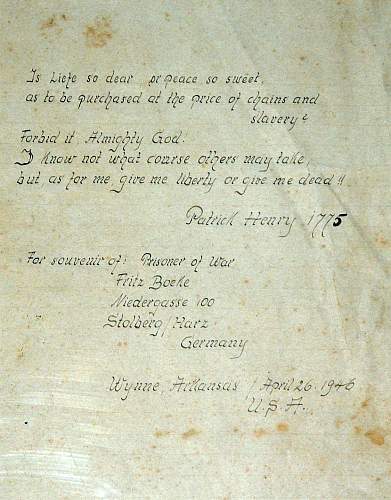 Is Liefe so dear or peace so sweet,
as to be purchased at the price of chains and
slavery?
Forbid it, Almighty God.
I know not what course others may take,
but as for me, give me liberty or give me dead!!
Patrick Henry 1775
For souvenir of: Prisoner of War
Fritz Boeke
Niedergasse 100
Stolberg/Harz
Germany
Wynne, Arkansas / April 26. 1946
U.S.A.